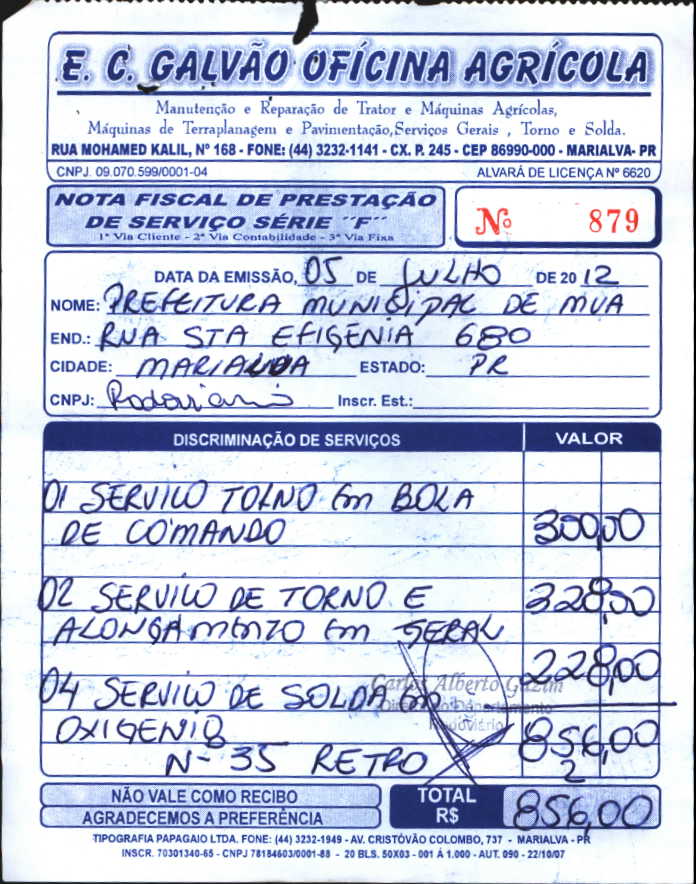 E. C. GALVÃO OFÍCINA AGRÍCOLA
Manutenção e Reparação de Trator e Máquinas Agrícolas,
Máquinas de Terraplanagem e Pavimentação,Serviços Gerais , Torno e Solda.
RUA MOHAMED KALIL, Nº 168 - FONE: (44) 3232-1141 - CX. P. 245 - CEP 86990-000 - MARIALVA- PR
CNPJ. 09.070.599/0001-04 ALVARÁ DE LICENÇA Nº 6620
NOTA FISCAL DE PRESTAÇÃO
DE SERVIÇO SÉRIE ´´F´´
1ª Via Cliente - 2ª Via Contabilidade - 3ª Via Fixa
Nº 879
DATA DA EMISSÃO, 05 DE JULHO DE 20 12
NOME: PREFEITURA MUNICIPAL DE MUA
END.: RUA STA EFIGENIA 680
CIDADE: MARIALVA ESTADO: PR
CNPJ: Rodoviario Inscr. Est.:
DISCRIMINAÇÃO DE SERVIÇOS VALOR
01 SERVIÇO TORNO Em BOLA
DE COMANDO 300,00
02 SERVIÇO DE TORNO E 328,00
ALONGAmENTO Em GERAL
228,00
04 SERVIÇO DE SOLDA Em
Carlos Alberto Guzim
Diretor do Departamento
Rodoviário
OXIGENIO 856,00
N- 35 RETRO 2
NÃO VALE COMO RECIBO
AGRADECEMOS A PREFERÊNCIA
TOTAL
R$ 856,00
TIPOGRAFIA PAPAGAIO LTDA. FONE: (44) 3232-1949 - AV. CRISTÓVÃO COLOMBO, 737 - MARIALVA - PR
INSCR. 70301340-65 - CNPJ 78184603/0001-88 - 20 BLS. 50X03 - 001 Á 1.000 - AUT. 090 - 22/10/07